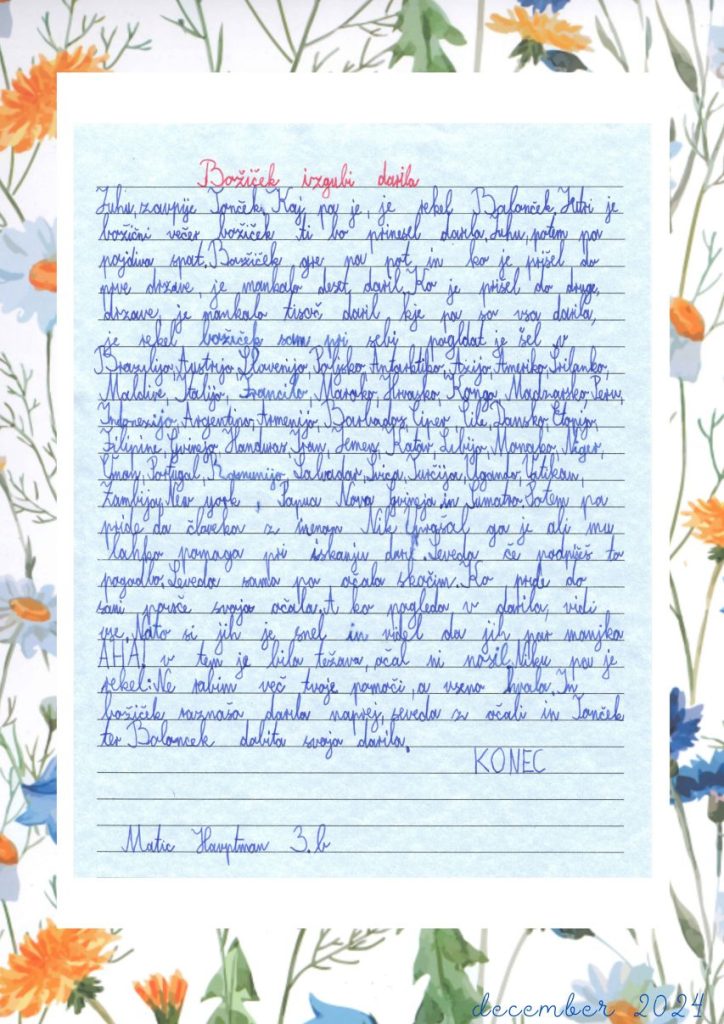 Božiček izgubi darila
Juhu, zavpije Tonček. Kaj pa je, je rekel Balonček, Jutri je
božični večer božiček ti bo prinesel darila. Juhu, potem pa
pojdiva spat. Božiček gre na pot in ko je prišel do
prve države, je mankalo deset daril. Ko je prišel do druge,
države, je mankalo tisoč daril kje pa so vsa darila,
je rekel božiček sam pri sebi pogldat je šel v
Brazilijo, Austrijo, Slovenijo, Poljsko, Antarktiko, Azijo, Ameriko, Šrilanko,
Maldive, Italijo, Francijo, Maroko, Hrvaško, Kongo, Madžarsko, Peru,
Indonezijo, Argentino, Armenijo, Barbados, Ciper, Čile, Dansko, Etonjo,
Filipine, Gvinejo, Honduras, Iran, Jemen, Katar, Libijo, Monako, Niger,
Oman, Portugal, Romunijo, Salvador, Švica, Turčija, Ugando, Vatikan,
Zambijo, New york, Papua Nova Gvineja in Sumatro. Potem pa
pride da človeka z imenom Nik ga je ali mu
lahko pomaga pri iskanju daril. Seveda če podpišeš to
pogodbo. Seveda samo po očala skočim. Ko pride do
sani poišče svoja očala. A ko pogleda v darila, vidi
vse. Nato si jih je snel in videl da jih par manjka
AHA! v tem je bila težava, očal ni nosil. Niku pa je
rekel: Ne rabim več tvoje pomoči, a vseno hvala. In
božiček raznaša darila naprej, seveda z očali in Tonček
ter Balonček dobita svoja darila.
KONEC
Matic Hauptman 3. b
december 2024